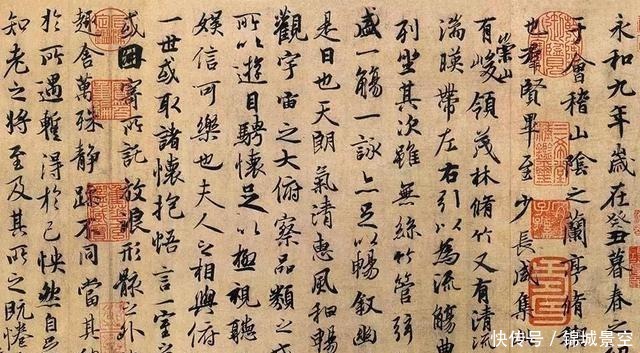 永和九年歲在癸丑暮春之
于會稽山陰之蘭亭脩
也羣賢畢至少長咸集
有崇山峻領茂林脩竹又有清流
湍暎帶左右引以為流觴曲
列坐其次雖無絲竹管弦
盛一觴一詠亦足以暢叙幽
是日也天朗氣清惠風和暢
觀宇宙之大俯察品類之
所以遊目騁懷足以極視聽
娛信可樂也夫人之相與俯
一世或取諸懷抱悟言一室之
或因寄所託放浪形骸之外
趣舍萬殊靜躁不同當其
於所遇暫得於己怏然自
知老之將至及其所之既惓
快传号 / 锦城景空